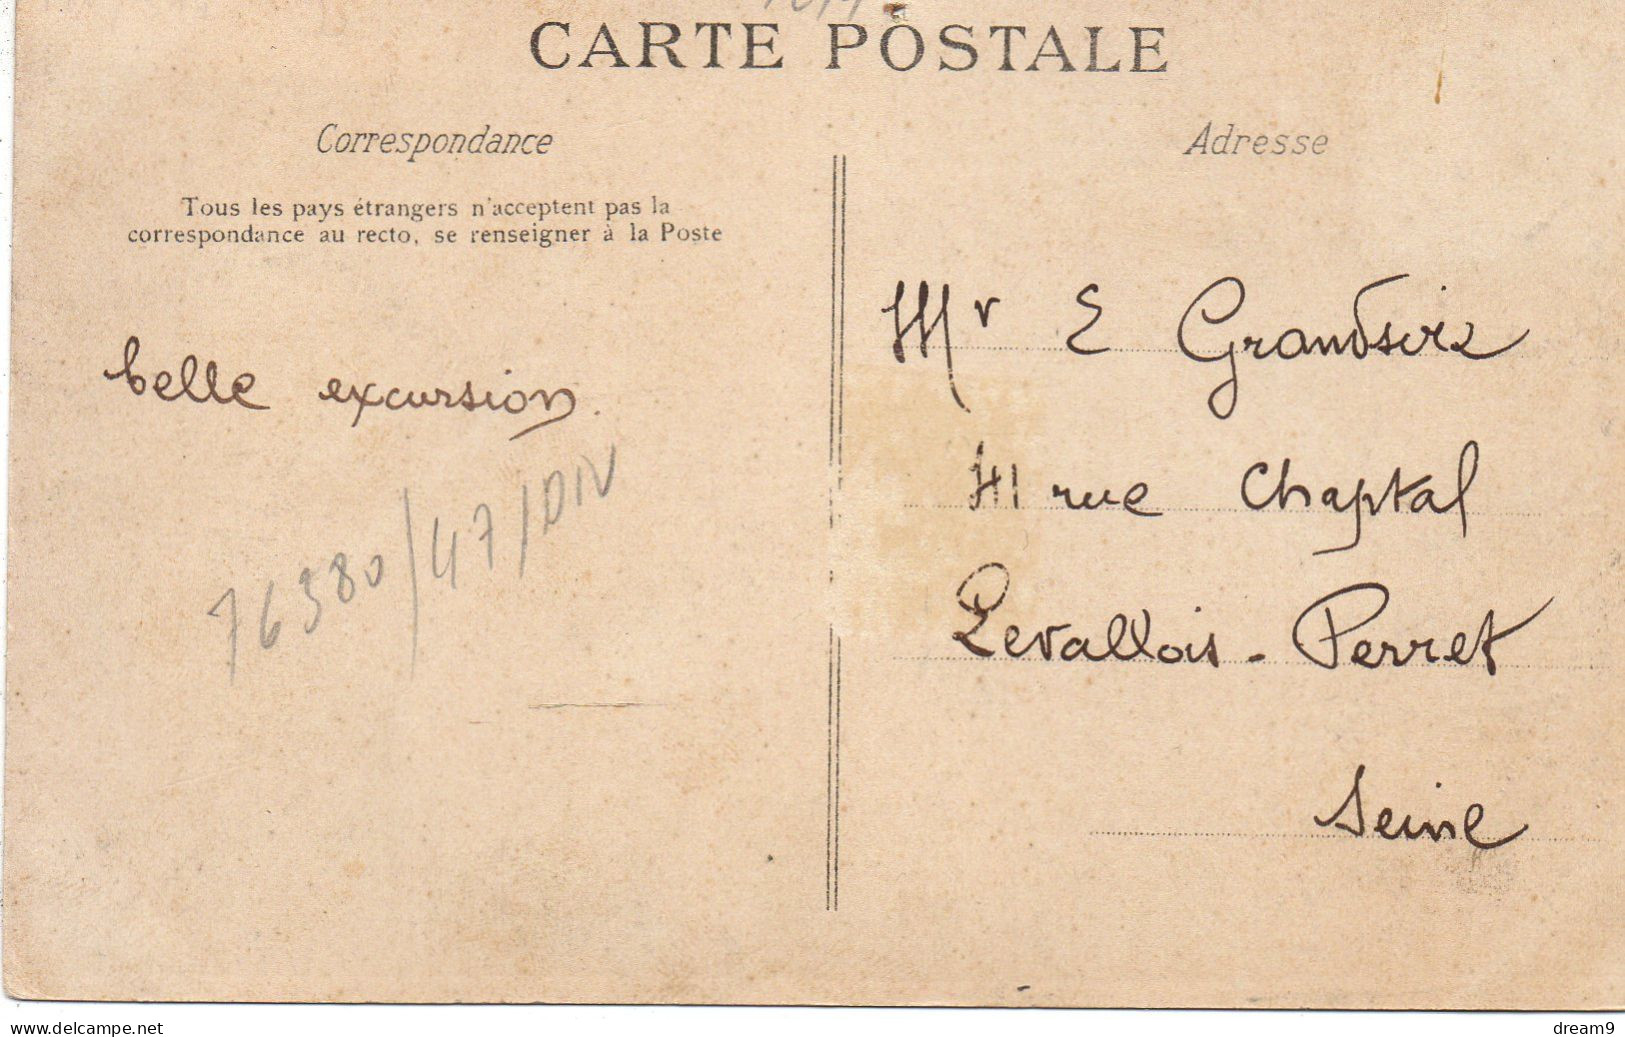 CARTE POSTALE
Correspondance
Tous les pays étrangers n'acceptent pas la
correspondance au recto, se renseigner à la Poste
belle excursion.
76380/47/DIV
Adresse
Mr E Grandsire
41 rue Chaptal
Levallois-Perret
Seine
www.delcampe.net
dream9